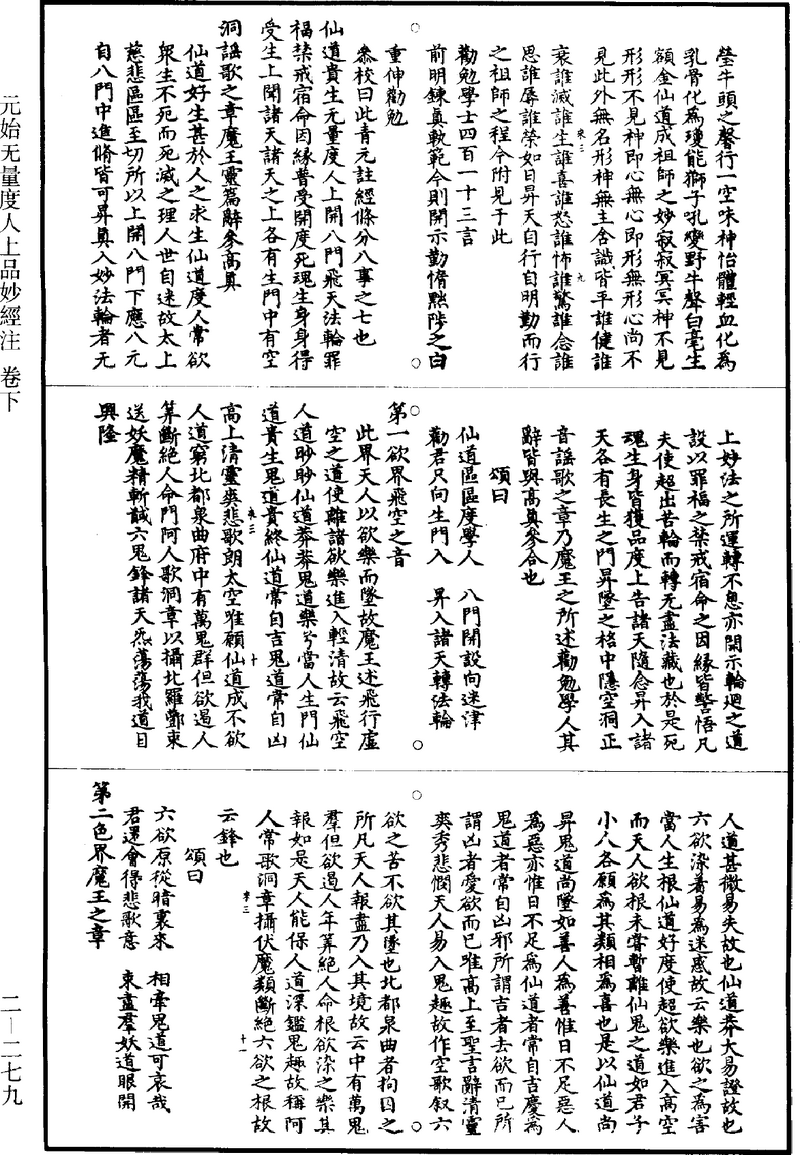 元始无量度人上品妙經注 卷下
二—二七九
瑩牛頭之聲行一空味神怡體輕血化為
乳骨化為瓊能獅子吼變野牛聲白毫生
額金仙道成祖師之妙寂寂冥冥神不見
形形不見神即心無心即形無形心尚不
見此外無名形神無主含識皆平誰健誰
衰誰滅誰生誰喜誰怒誰怖誰驚誰念誰
思誰辱誰榮如日昇天自行自明勤而行
之祖師之程今附見于此
勸勉學士四百一十三言
前明鍊真軌範今則開示勤脩黜陟之曰
重伸勸勉
叅校曰此青元註經條分八事之七也
仙道貴生无量度人上開八門飛天法輪罪
福禁戒宿命因緣普受開度死魂生身身得
受生上聞諸天諸天之上各有生門中有空
洞謠歌之章魔王靈篇辭參高真
仙道好生甚於人之求生仙道度人常欲
衆生不死而死滅之理人世自迷故太上
慈悲區區至切所以上開八門下應八元
自八門中進脩皆可昇真入妙法輪者无
上妙法之所運轉不息亦開示輪迴之道
設以罪福之禁戒宿命之因緣皆警悟凡
夫使超出苦輪而轉无盡法藏也於是死
魂生身皆獲品度上告諸天隨念昇入諸
天各有長生之門昇墜之格中隱空洞正
音謠歌之章乃魔王之所述勸勉學人其
辭皆與高真參合也
頌曰
仙道區區度學人 八門開設向迷津
勸君只向生門入 昇入諸天轉法輪
第一欲界飛空之音
此界天人以欲樂而墜故魔王述飛行虛
空之道使離諸欲樂進入輕清故云飛空
人道眇眇仙道莽莽鬼道樂兮當人生門仙
道貴生鬼道貴終仙道常自吉鬼道常自凶
高上清靈爽悲歌朗太空唯願仙道成不欲
人道窮北都泉曲府中有萬鬼群但欲遏人
算斷絕人命門阿人歌洞章以攝北羅酆束
送妖魔精斬馘六鬼鋒諸天炁蕩蕩我道日
興隆
人道甚微易失故也仙道莽大易證故也
六欲染著易為迷惑故云樂也欲之為害
當人生根仙道好度使超欲樂進入高空
而天人欲根未嘗暫離仙鬼之道如君子
小人各願為其類相為喜也是以仙道尚
昇鬼道尚墜如善人為善惟日不足惡人
為惡亦惟日不足為仙道者常自吉慶為
鬼道者常自凶邪所謂吉者去欲而已所
謂凶者愛欲而已唯高上至聖吉辭清靈
爽秀悲憫天人易入鬼趣故作空歌叙六
欲之苦不欲其墜也北都泉曲者拘囚之
所凡天人報盡乃入其境故云中有萬鬼
羣但欲遏人年筭絕人命根欲染之樂其
報如是天人能保人道深鑑鬼趣故稱阿
人常歌洞章攝伏魔類斷絕六欲之根故
云鋒也
頌曰
六欲原從暗裏來 相牽鬼道可哀哉
君還會得悲歌意 束盡羣妖道眼開
第二色界魔王之章